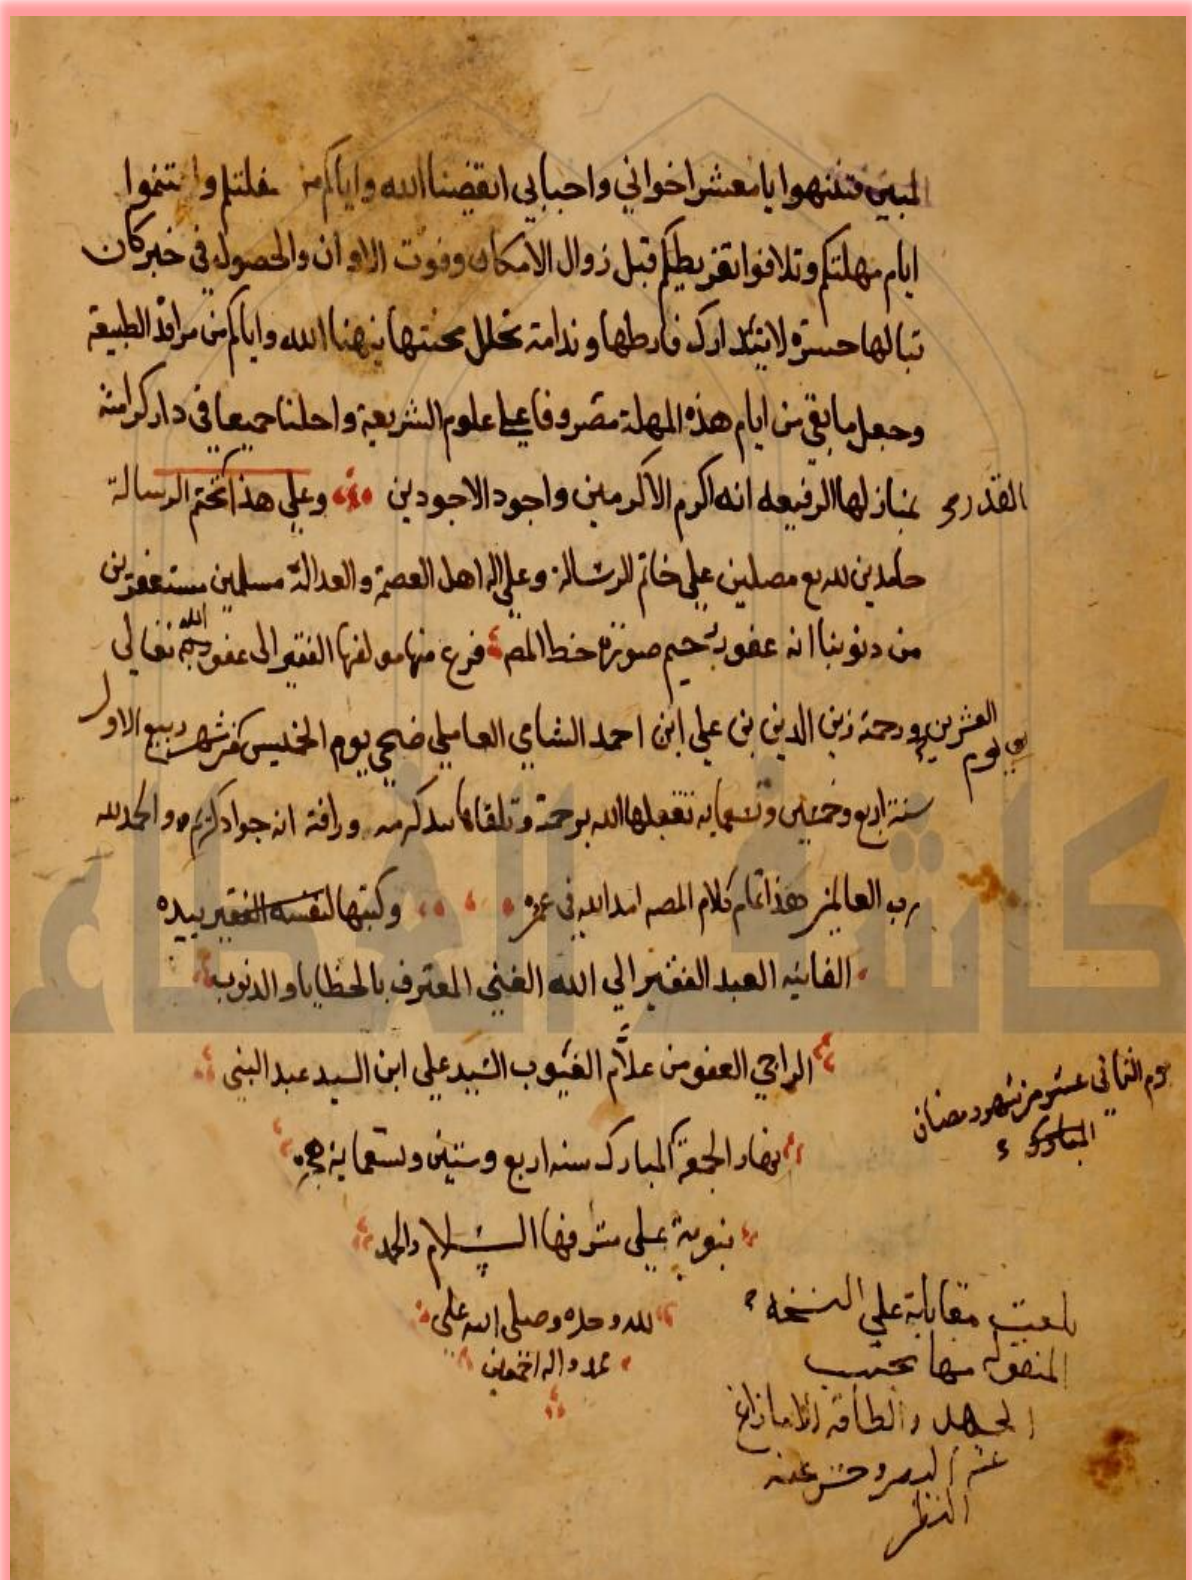 المبين فتنبهوا يا معشر اخواني واحبابي ايقضنا الله واياكم من غفلتكم واغتنموا
ايام مهلتكم وتلافوا تفريطكم قبل زوال الامكان وفوت الاوان والحصول في خبر كان
تبالها حسرة لا يتدارك فارطها وندامة تخلل محنتها نبهنا الله واياكم من مراقد الطبيعة
وجعل ما بقي من ايام هذه المهلة مصروفا علي علوم الشريعة واحلنا جميعا في دار كرامته
بمنازلها الرفيعه انه اكرم الاكرمين واجود الاجودين وعلي هذا نختم الرسالة
القدرى
حامدين لله مصلين علي خاتم الرسالة وعلي اله اهل العصمة والعدالة مسلمين مستغفرين
من ذنوبنا انه غفور رحيم صورة خط المص فرغ منها مولفها الفقير الى عفو الله تعالي
ورحمته زين الدين بن علي ابن احمد الشامي العاملي ضحي يوم الخميس شهر ربيع الاول
يوم العشرين
سنة اربع وخمسين وتسعمايه تقبلها الله برحمته وتلقاها بيد كرمه ورافته انه جواد كريم والحمد لله
رب العالمين هذا تمام كلام المصه امد الله في عمره وكتبها لنفسه الفقير بيده
الفانيه العبد الفقير الي الله الغني المعترف بالخطايا والذنوب
الراجي العفو من علام الغيوب السيد علي ابن السيد عبد النبي
نهار الجمعة المبارك سنه اربع وستين وتسعماية هج
يوم الثاني عشر من شهر رمضان
المبارك
نبوية على مشرفها السلام والحمد
لله وحده وصلى الله على
محمد واله اجمعين
بلغت مقابلة علي النسخه
المنقوله منها بحسب
الجهد والطاقه الا ما زاغ
عنه البصر وحسر عنه
النظر